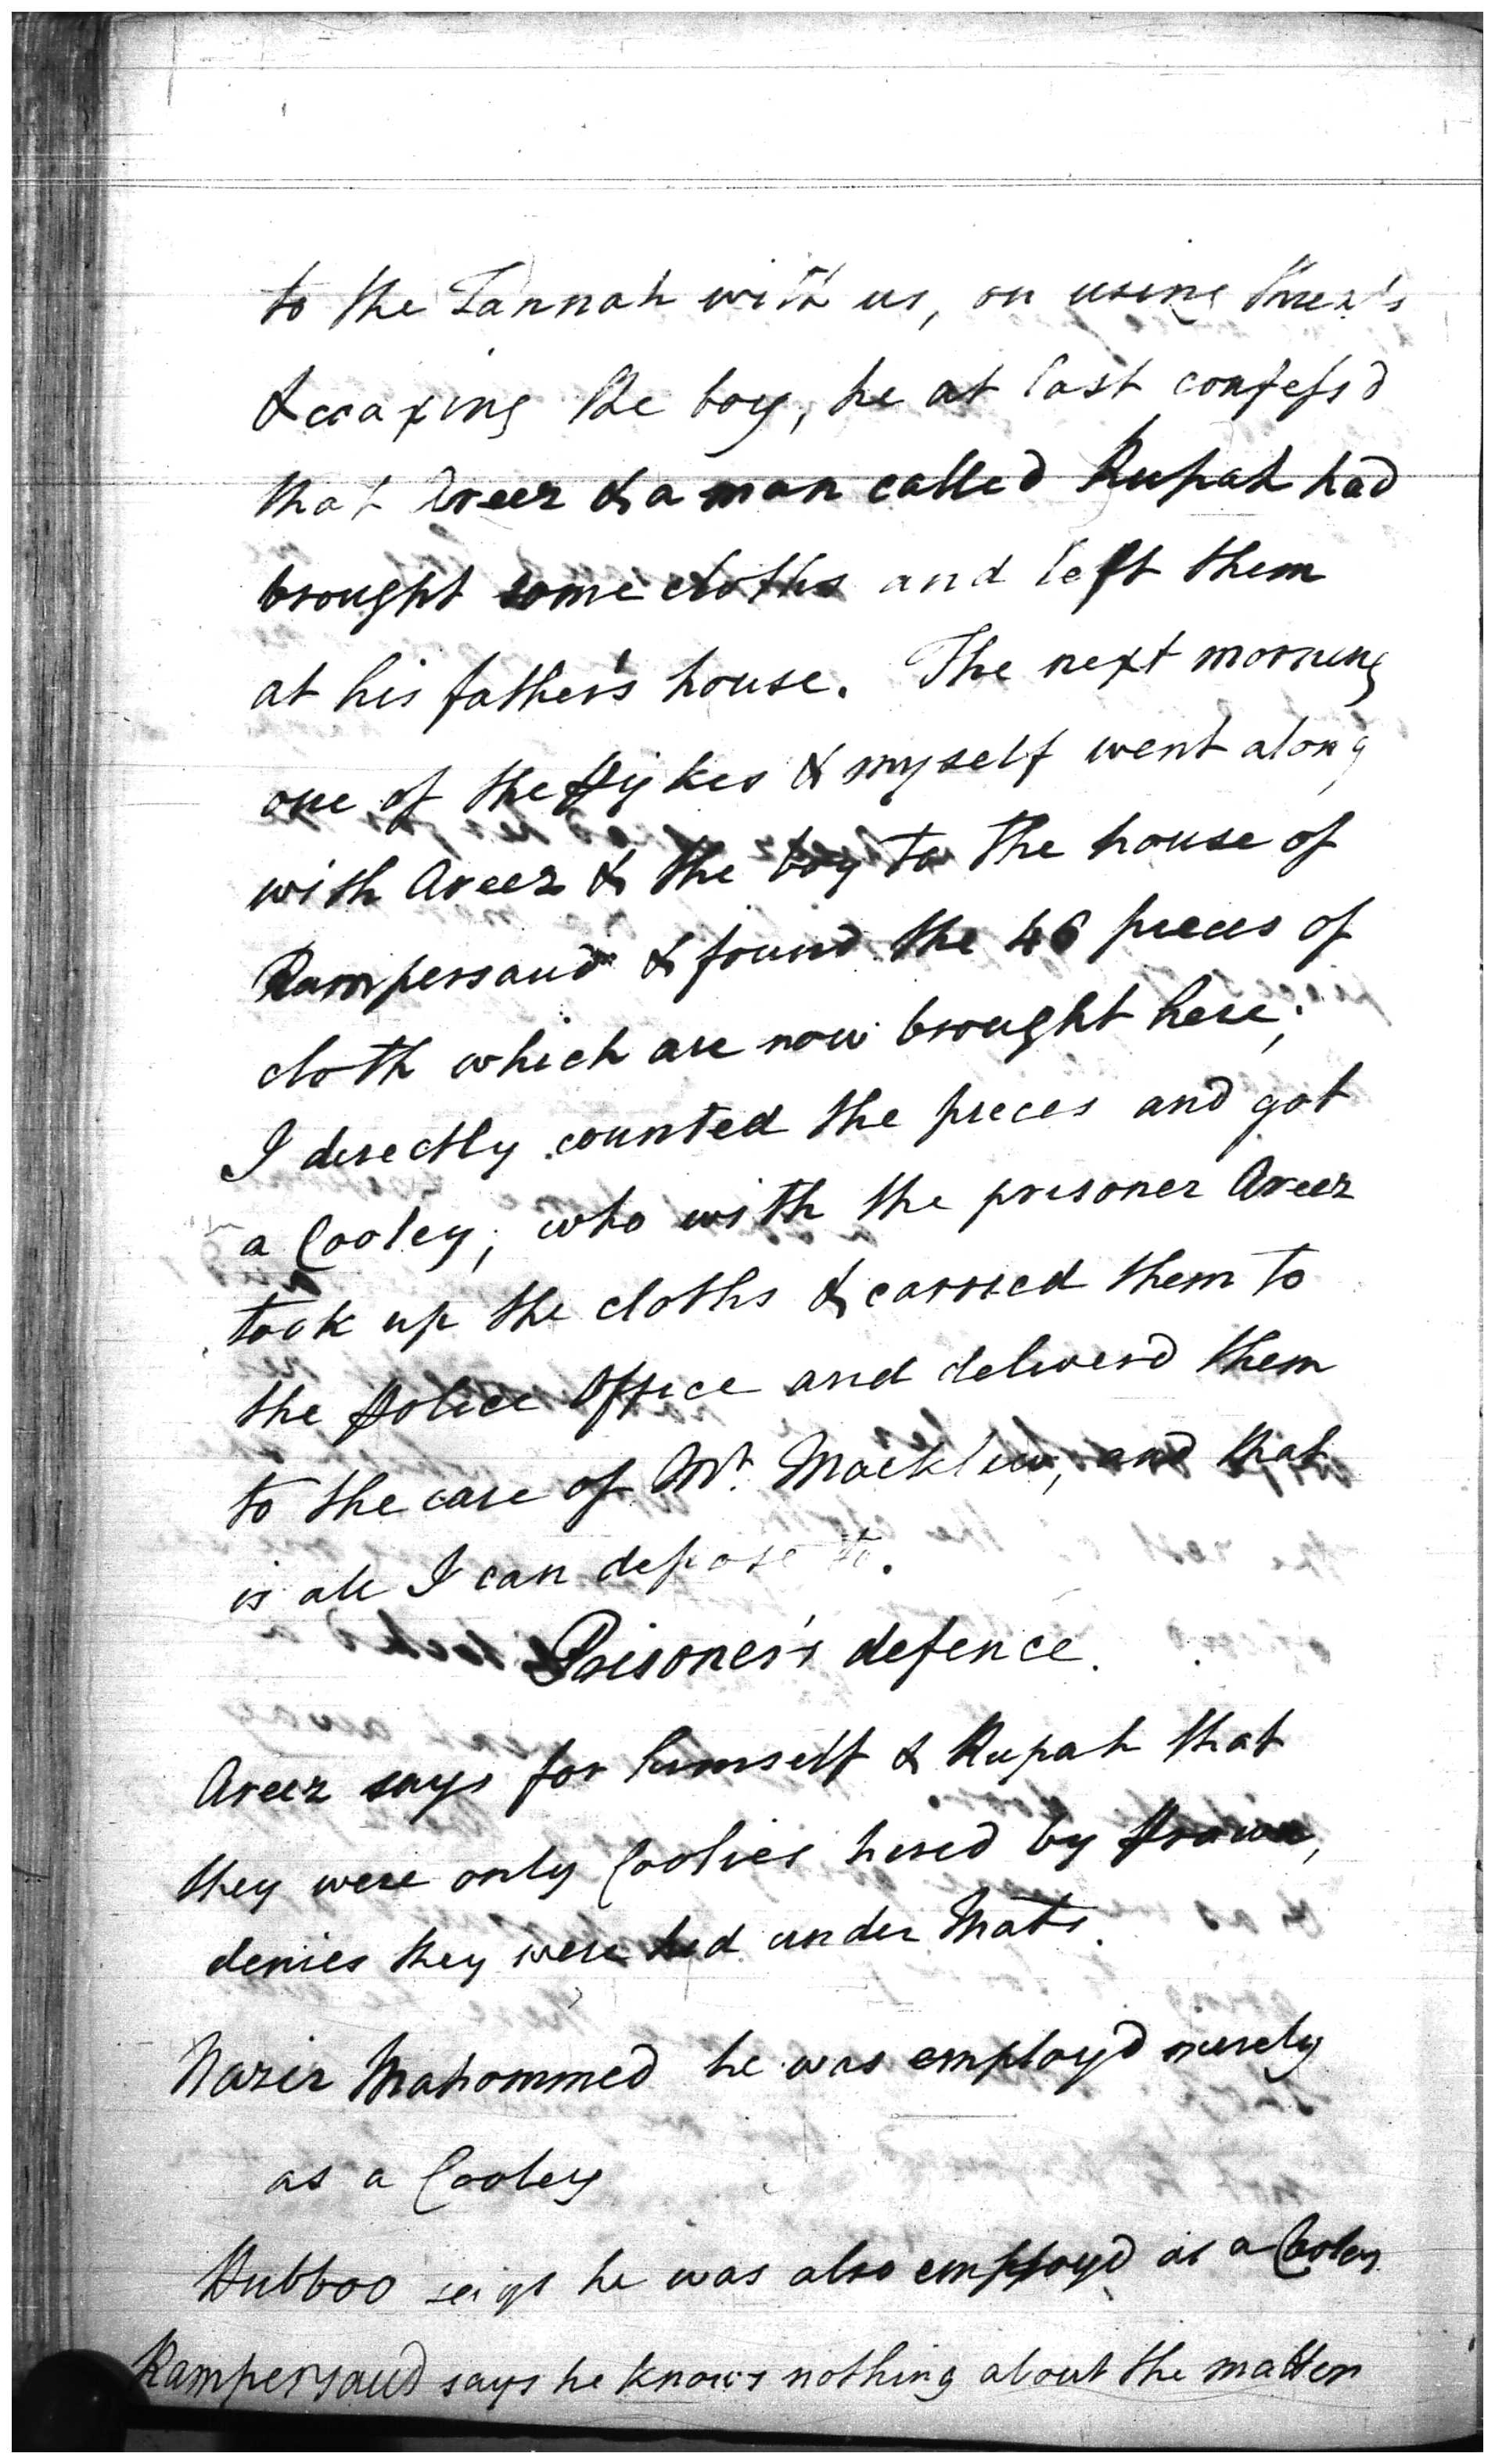 to the Tannah with us, on using threats
& coaxing the boy, he at last confess'd
that Areez & a man called Rupah had
brought some cloths and left them
at his father's house. The next morning
one of the Pykes & myself went along
with Areez & the boy to the house of
Rampersaud & found the 46 pieces of
cloth which are now brought here;
I directly counted the pieces and got
a Cooley, who with the prisoner Areez
took up the cloths & carried them to
the Police Office and deliverd them
to the care of Mr. Macklew, and that
is all I can depose to.
Prisoner's defence.
Areez says for himself & Rupah that
they were only Coolies hired by
denies they were hid under Mats.
Nazir Mahommed he was employ'd merely
as a Cooley
Hubboo says he was also employd as a Cooley.
Rampersaud says he knows nothing about the matter